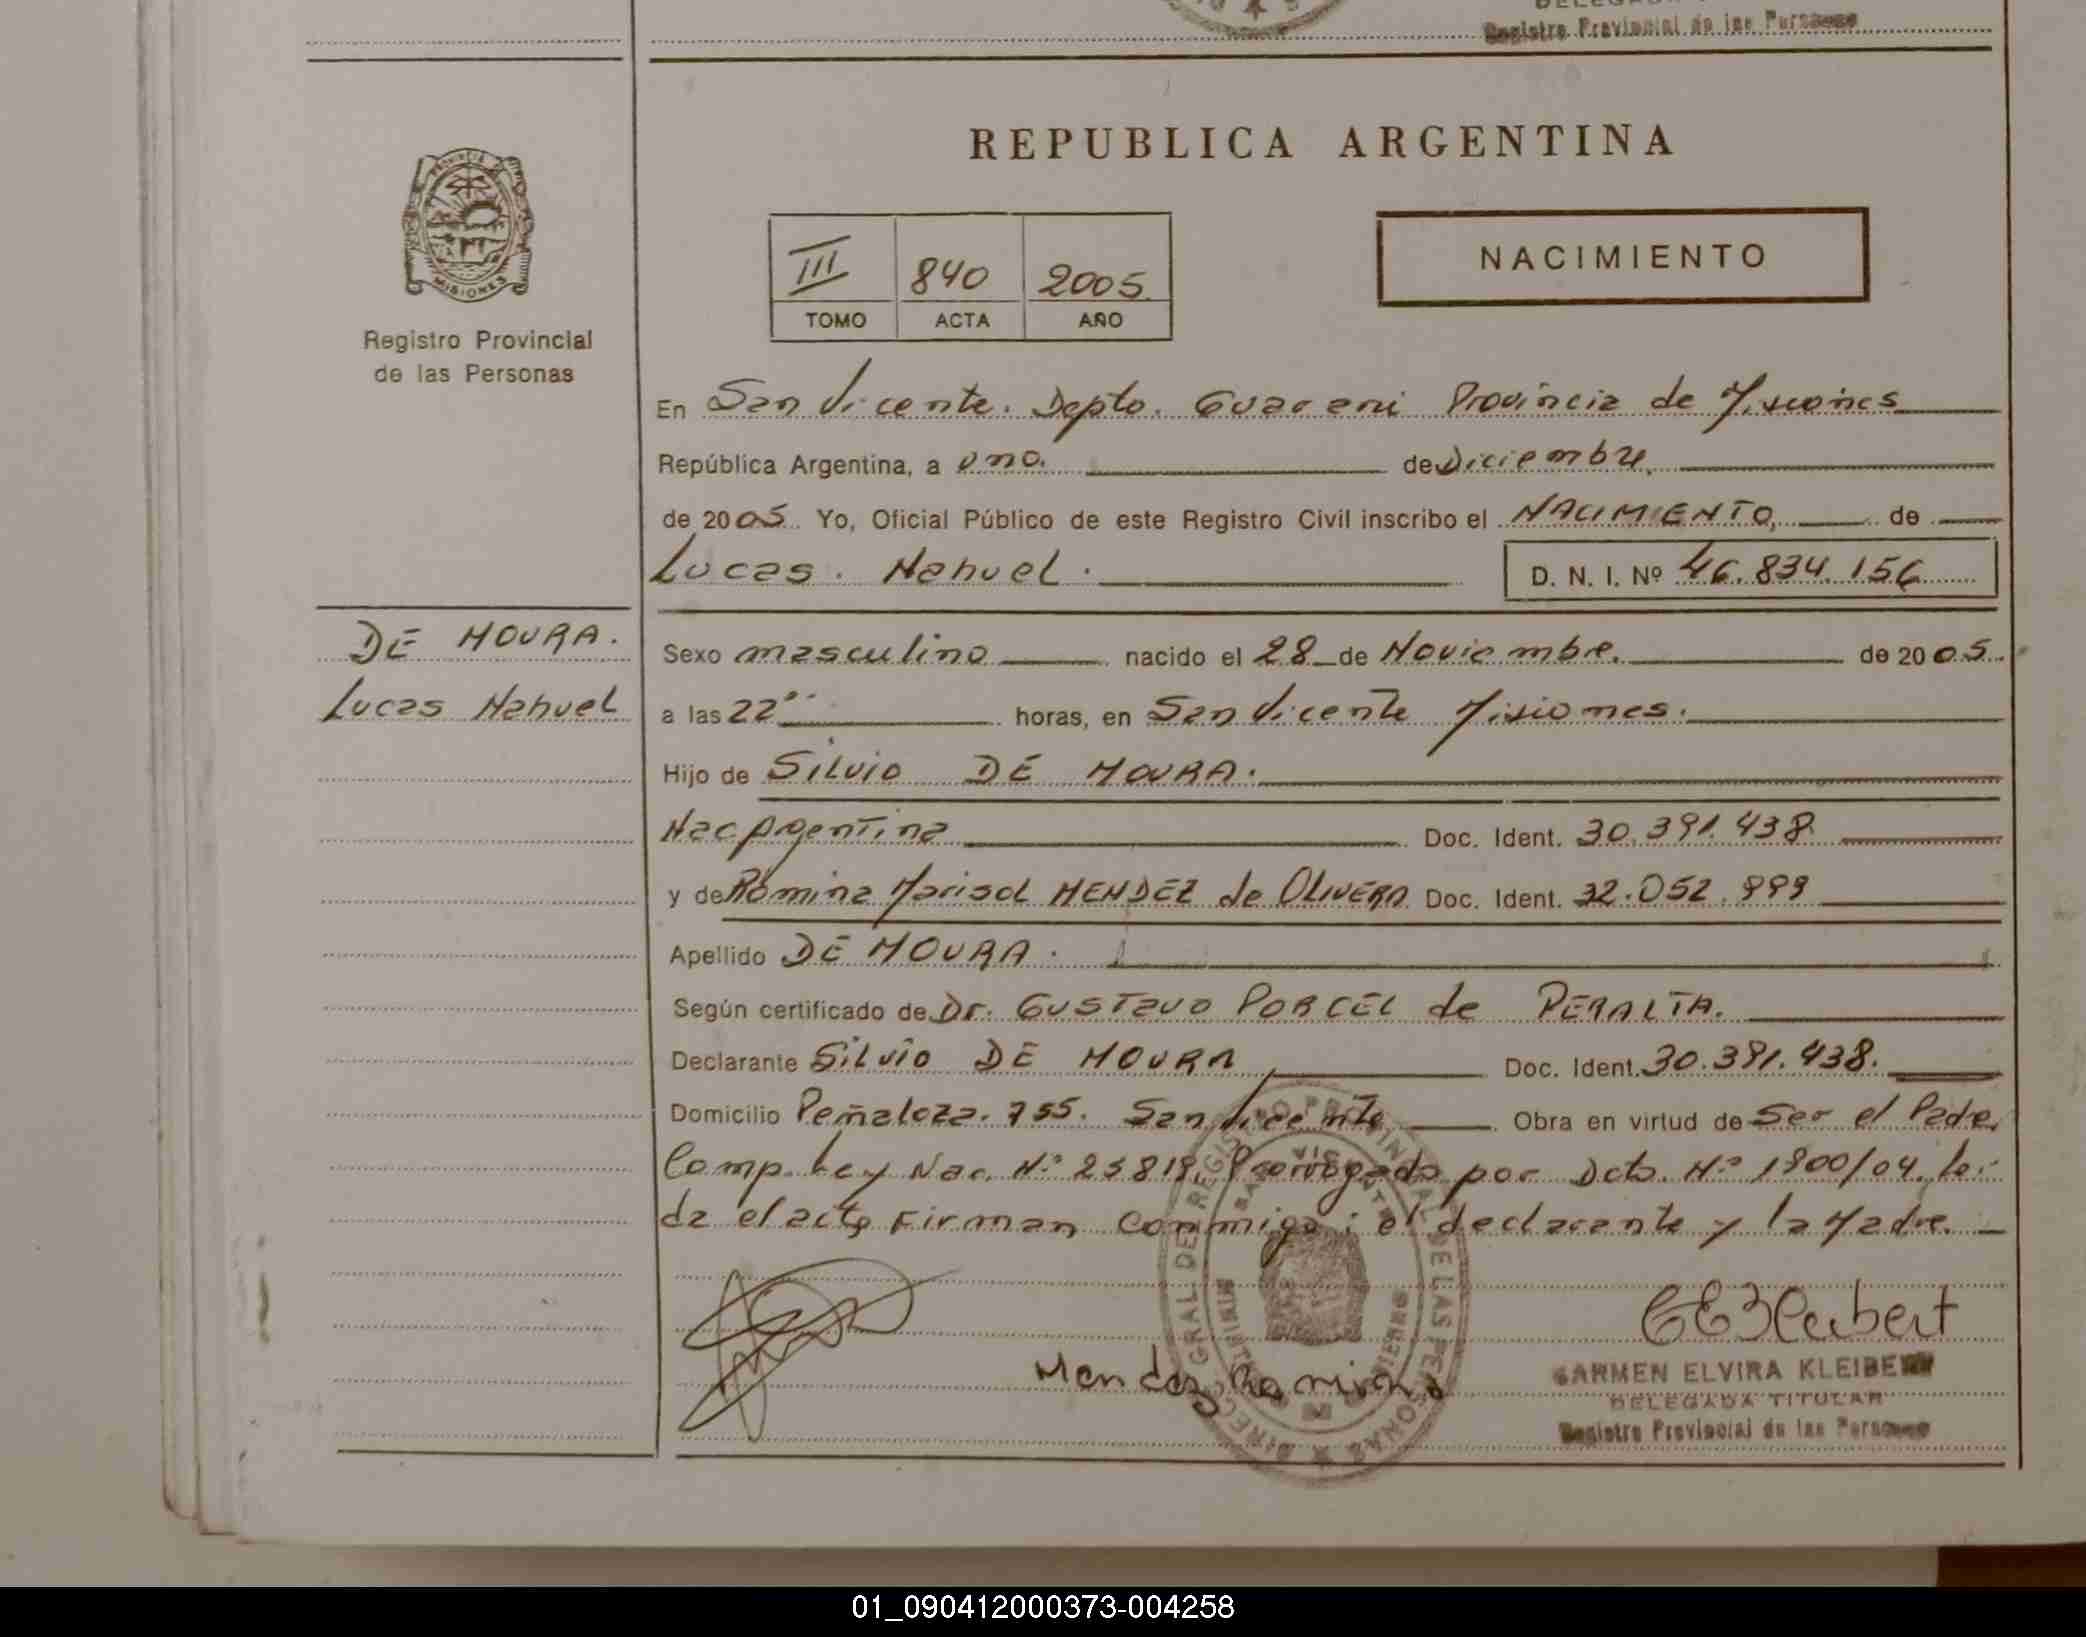 DELEGADA
Registro Provincial de las Personas
PROVINCIA DE
MISIONES
Registro Provincial
de las Personas
REPUBLICA ARGENTINA
III 840 2005
TOMO ACTA AÑO
NACIMIENTO
En San Vicente. Depto. Guarani Provincia de Misiones
República Argentina, a uno. de Diciembre.
de 2005. Yo, Oficial Público de este Registro Civil inscribo el NACIMIENTO, de
Lucas. Nahuel. D. N. I. Nº 46.834.156
DE MOURA.
Lucas Nahuel
Sexo masculino nacido el 28 de Noviembre. de 2005.
a las 22 horas, en San Vicente Misiones.
Hijo de Silvio DE MOURA.
Nac Argentina Doc. Ident. 30.391.438
y de Romina Marisol MENDEZ de OLIVERA Doc. Ident. 32.052.999
Apellido DE MOURA.
Según certificado de Dr. GUSTAVO PORCEL de PERALTA.
Declarante Silvio DE MOURA Doc. Ident. 30.391.438.
Domicilio Peñaloza. 755. San Vicente Obra en virtud de Ser el Padre.
Comp. Ley Nac. Nº 25819, Prorrogado por Dcto. Nº 1900/04, lei
da el acta Firman Conmigo: el declarante y la Madre.
Mendez Romina
CARMEN ELVIRA KLEIBERT
DELEGADA TITULAR
Registro Provincial de las Personas
01_090412000373-004258